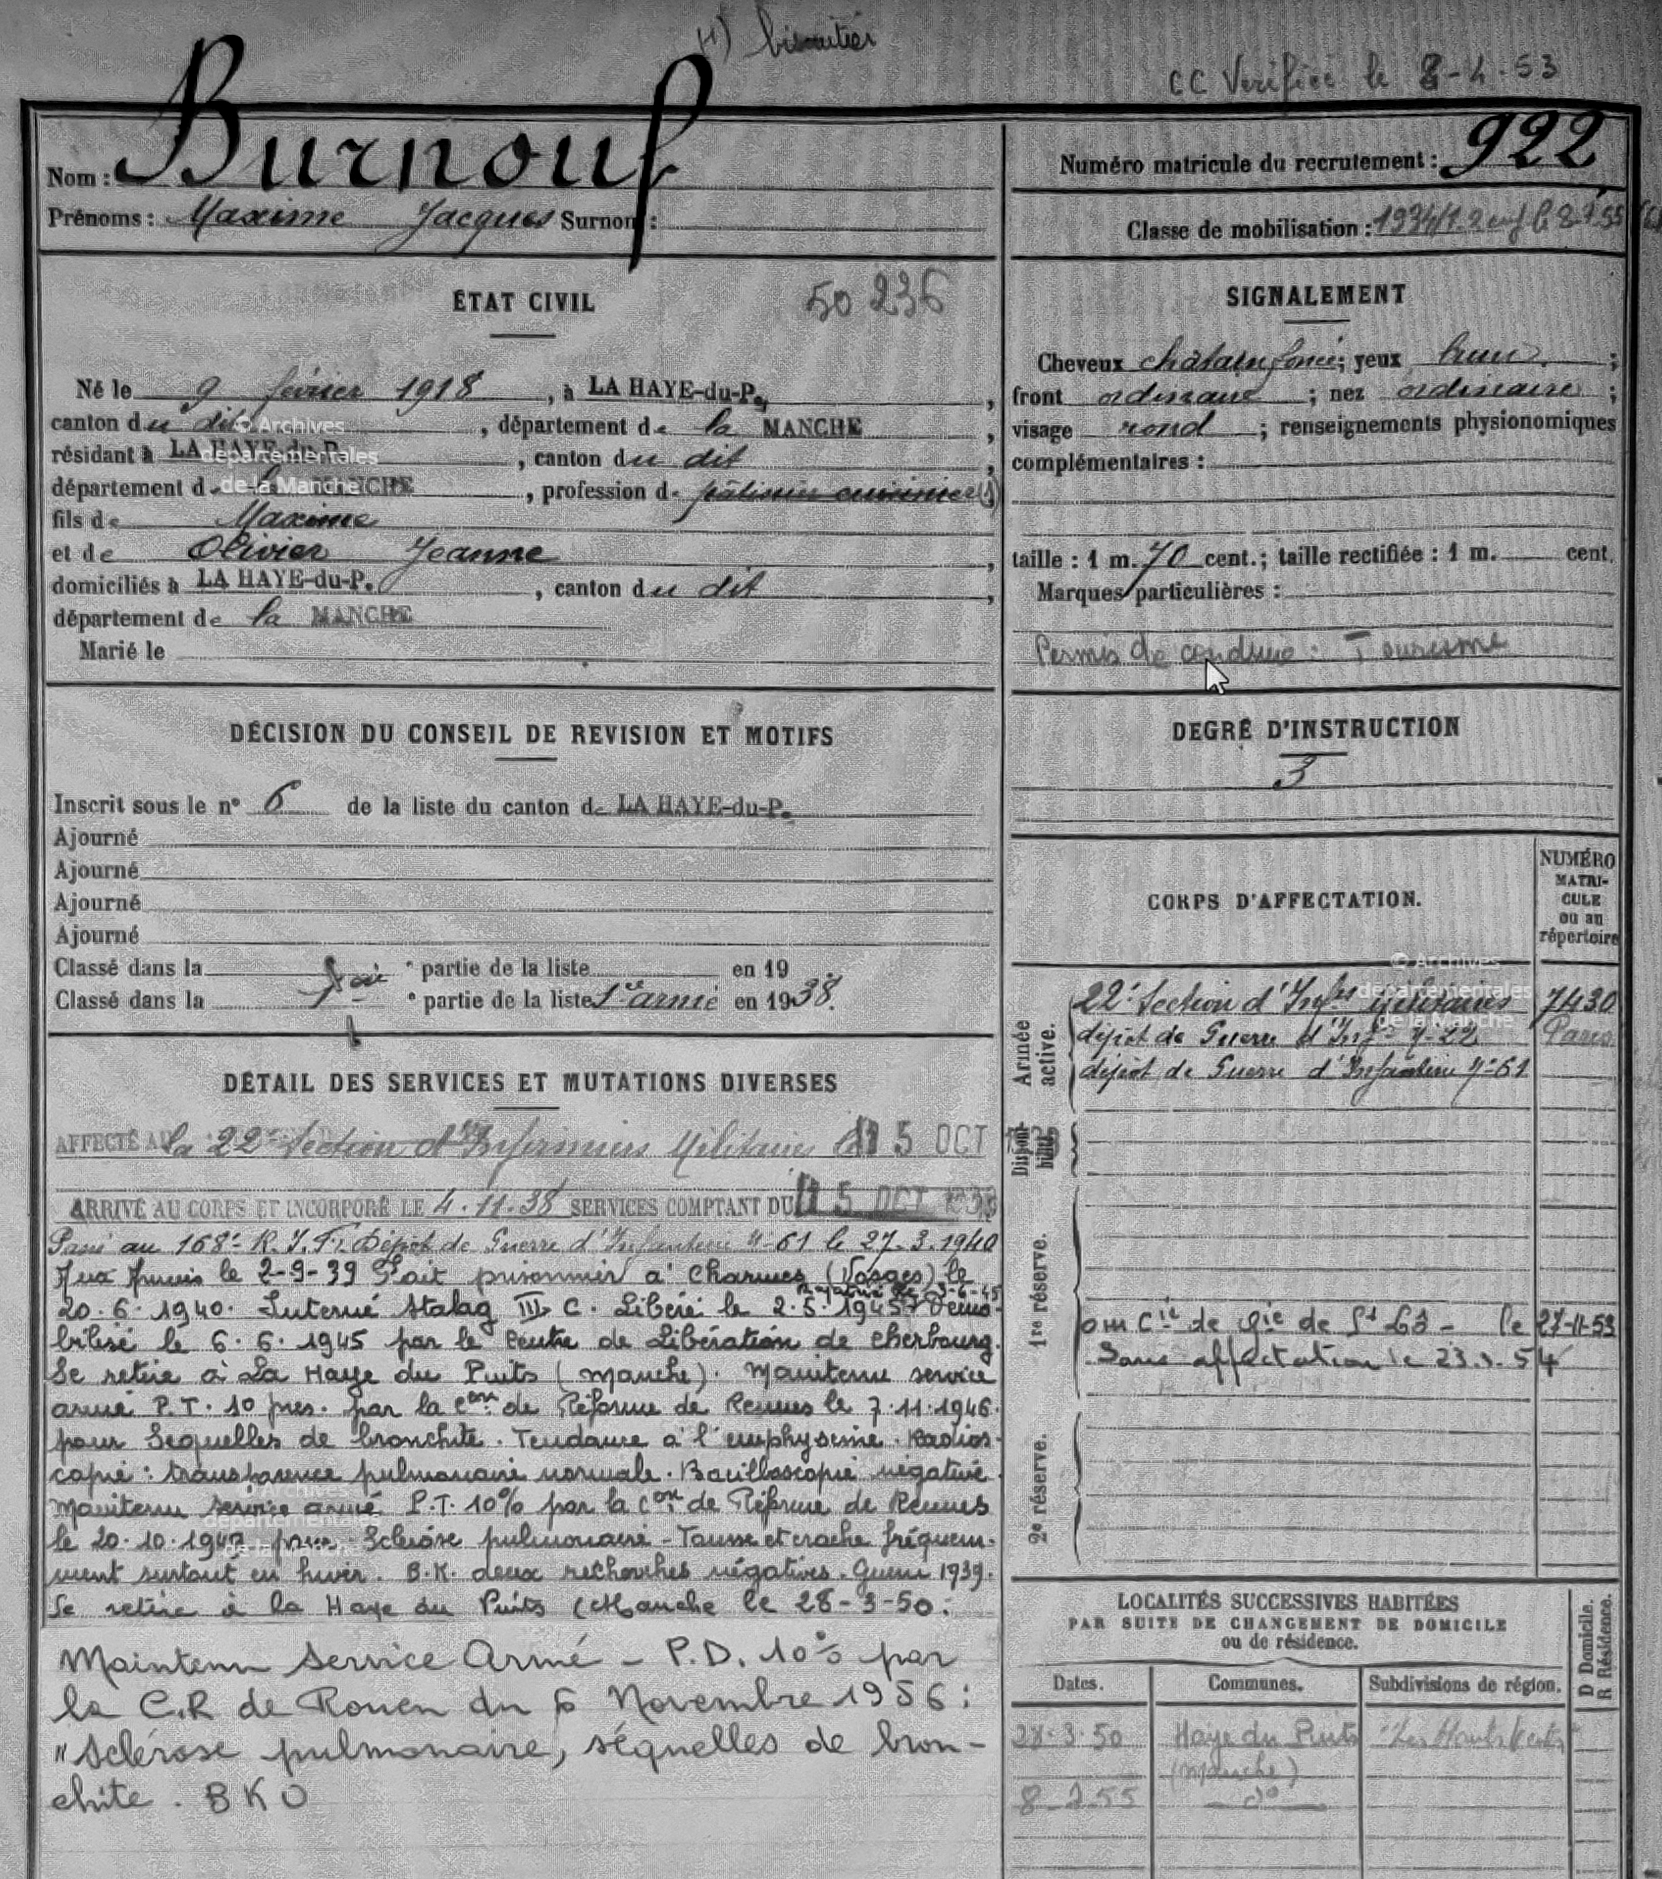 (1) biscuitier
CC Verifiée le 8-4-53
Nom : Burnouf
Prénoms : Maxime Jacques Surnom :
Numéro matricule du recrutement : 922
Classe de mobilisation : 1934/1.2 enf le 8.7.55
ÉTAT CIVIL
50 236
Né le 9 février 1918, à LA HAYE-du-P.,
canton du dit, département de la MANCHE,
résidant à LA HAYE-du-P., canton du dit,
département de la MANCHE, profession de pâtissier cuisinier (1)
fils de Maxime
et de Olivier Jeanne,
domiciliés à LA HAYE-du-P., canton du dit,
département de la MANCHE
Marié le
© Archives
départementales
de la Manche
SIGNALEMENT
Cheveux châtain foncé; yeux brun;
front ordinaire; nez ordinaire;
visage rond; renseignements physionomiques
complémentaires :
taille : 1 m. 70 cent.; taille rectifiée : 1 m. cent.
Marques particulières :
Permis de conduire : Tourisme
DÉCISION DU CONSEIL DE REVISION ET MOTIFS
Inscrit sous le n° 6 de la liste du canton de LA HAYE-du-P.
Ajourné
Ajourné
Ajourné
Ajourné
Classé dans la partie de la liste en 19
Classé dans la 1ère partie de la liste Sce armé en 1938.
DEGRÉ D'INSTRUCTION
3
DÉTAIL DES SERVICES ET MUTATIONS DIVERSES
AFFECTÉ A la 22e Section d'Infirmiers Militaires le 15 OCT
ARRIVÉ AU CORPS ET INCORPORÉ LE 4.11.38 SERVICES COMPTANT DU 15 OCT 1938
Passé au 168e R.I.F. Dépôt de Guerre d'Infanterie n°61 le 27.3.1940
Aux Armées le 2-9-39 Fait prisonnier à Charmes (Vosges) le
20.6.1940. Interné Stalag III C. Libéré le 2.5.1945. Rapatrié le 3-6-45 Démo-
bilisé le 6.6.1945 par le Centre de Libération de Cherbourg.
Se retire à La Haye du Puits (Manche). Maintenu service
armé P.T. 10 pres. par la Con de Réforme de Rennes le 7.11.1946.
pour Sequelles de bronchite. Tendance à l'emphyseme. Radios-
copie : transparence pulmonaire normale. Bacilloscopie négative.
Maintenu service armé P.T. 10% par la Con de Réforme de Rennes
le 20.10.1949 pour Sclérose pulmonaire - Tousse et crache fréquem-
ment surtout en hiver. B.K. deux recherches négatives. Guerre 1939.
Se retire à la Haye du Puits (Manche le 28-3-50.
Maintenu Service Armé - P.D. 10% par
la C.R de Rouen du 6 Novembre 1956 :
"Sclérose pulmonaire, séquelles de bron-
chite. BKO
© Archives
départementales
de la Manche
CORPS D'AFFECTATION.
NUMÉRO
MATRI-
CULE
ou au
répertoire
Armée active.
22e Section d'Infrs militaires 7430
dépôt de Guerre d'Inf. n°22 Paris
dépôt de Guerre d'Infanterie n°61
© Archives
départementales
de la Manche
Disponibilité
1re réserve.
om Cie de Gie de St Lô - le 27-11-53
Sans affectation le 23.3.54
2e réserve.
LOCALITÉS SUCCESSIVES HABITÉES
PAR SUITE DE CHANGEMENT DE DOMICILE
ou de résidence.
D Domicile.
R Résidence.
Dates. Communes. Subdivisions de région.
28.3.50 Haye du Puits "Les Hauts Vents"
(Manche)
8-2-55 do